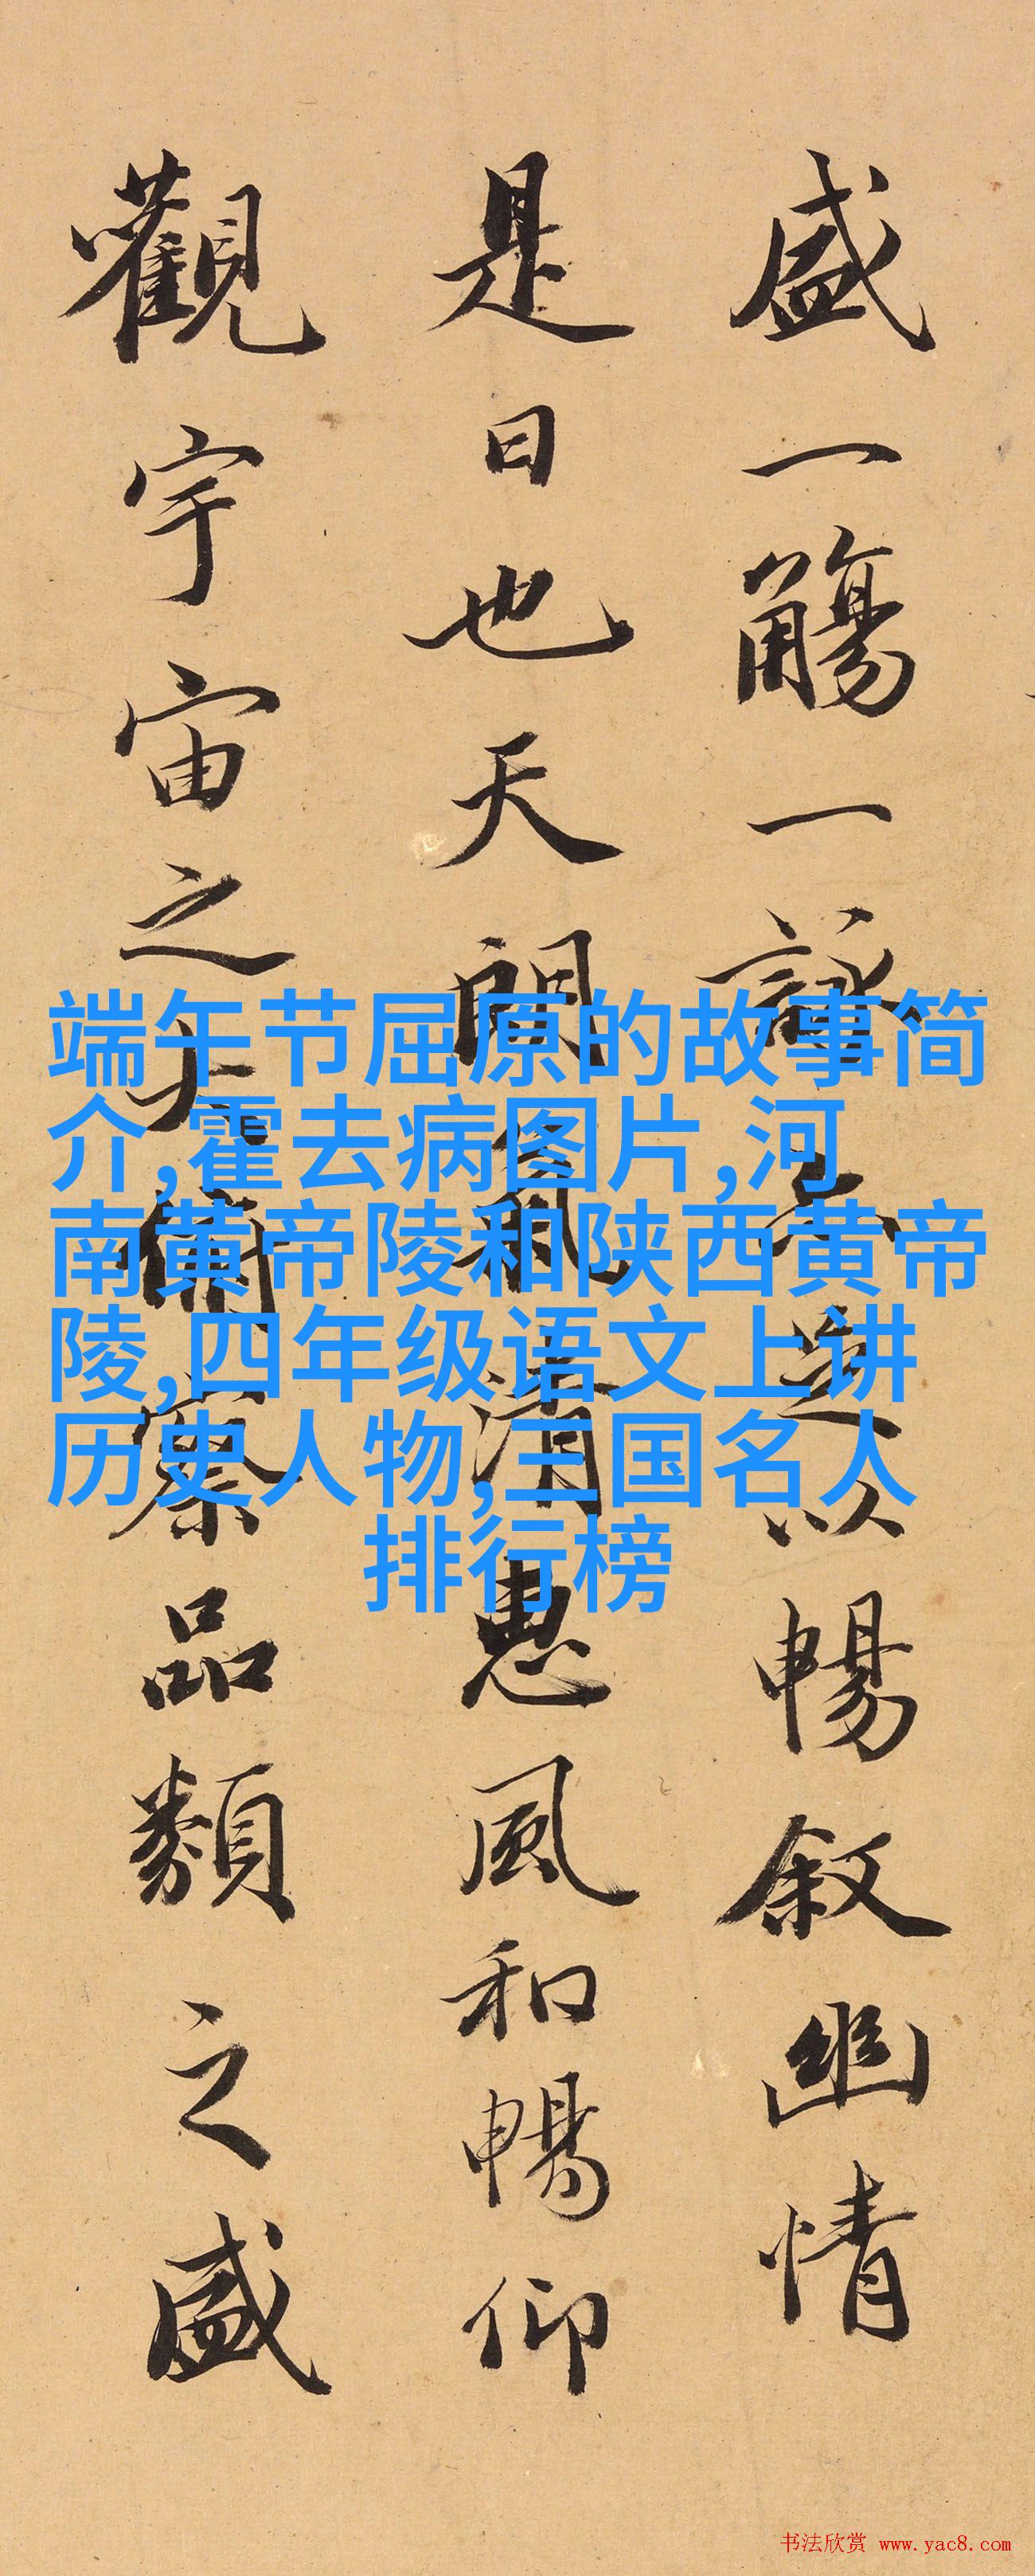 盛一觴一詠亦足以暢叙幽情
是日也天朗氣清惠風和暢仰
觀宇宙之大俯察品類之盛
端午节屈原的故事简
介,霍去病图片,河
南黄帝陵和陕西黄帝
陵,四年级语文上讲
历史人物,三国名人
排行榜
书法欣赏 www.yac8.com